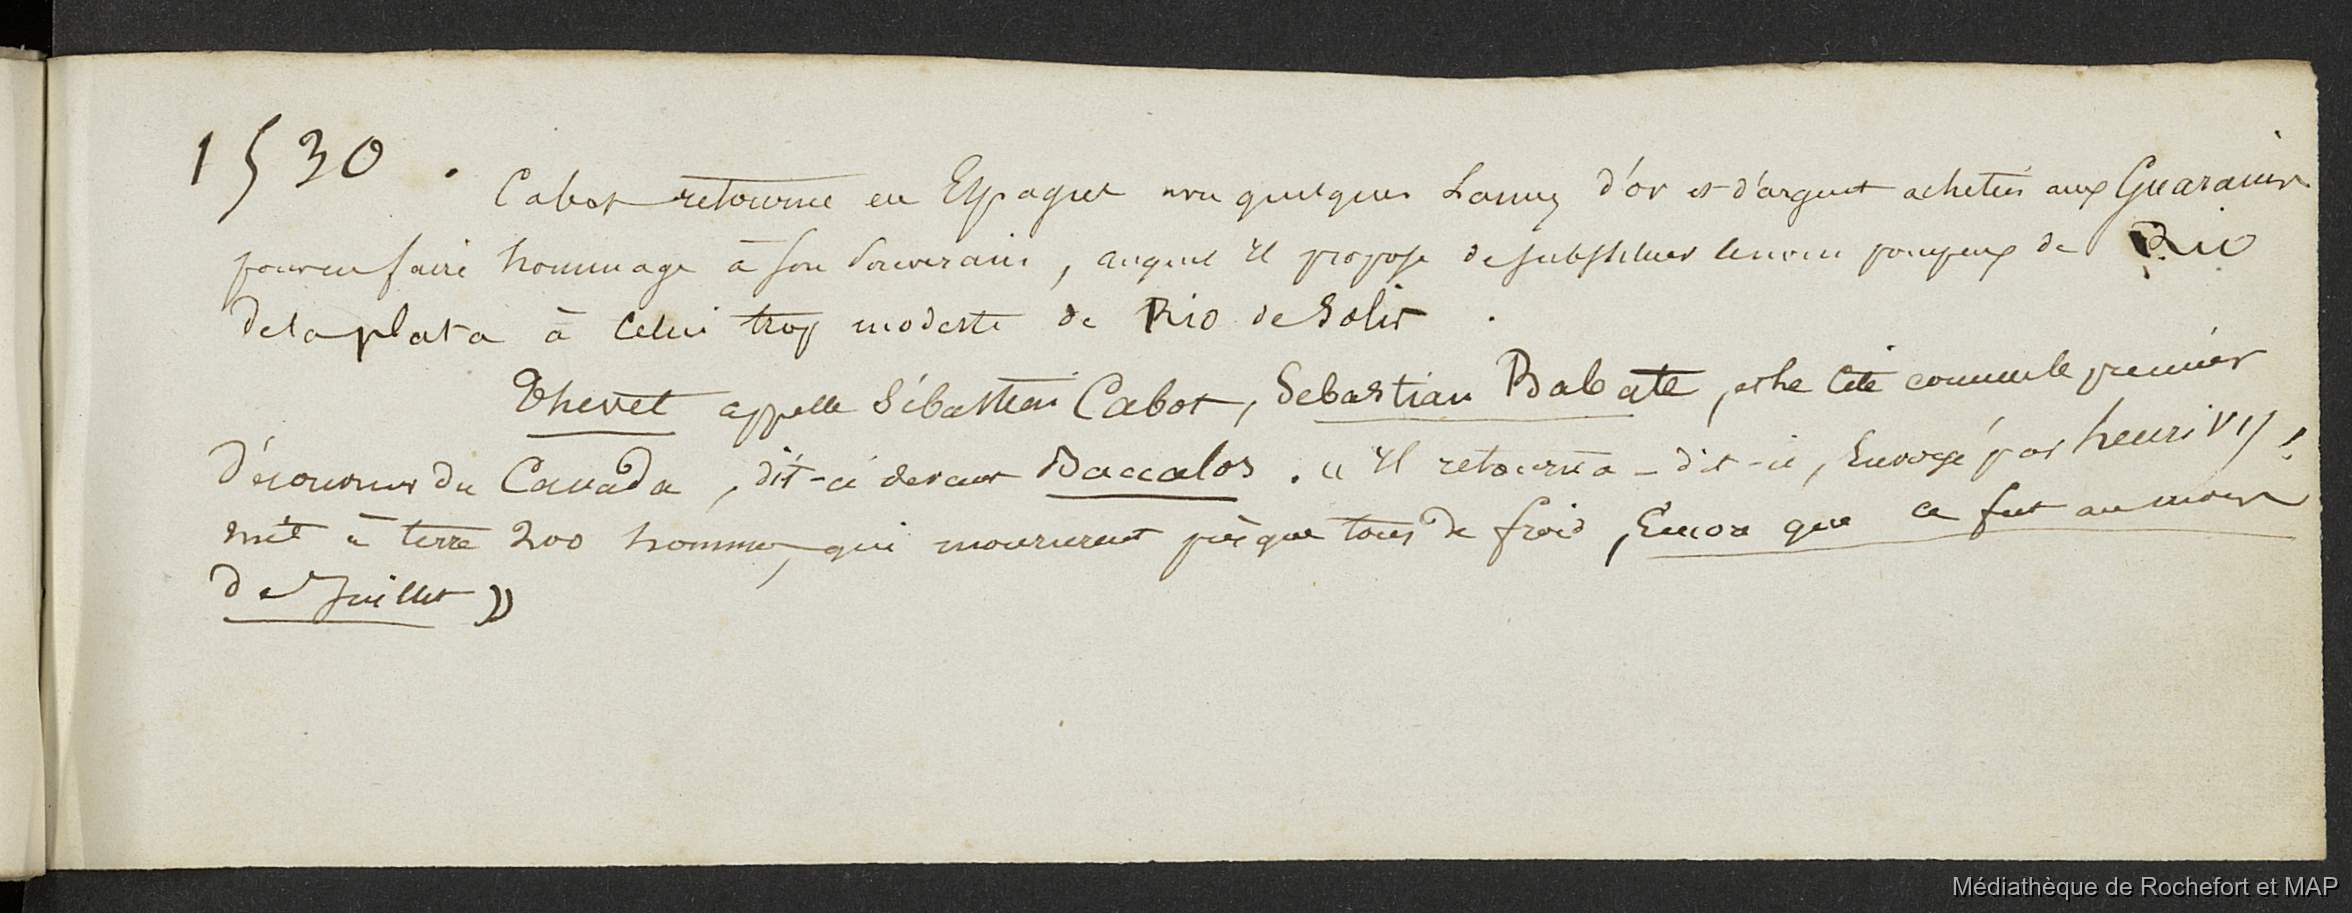 1530. Cabot retourne en Espagne avec quelques Lames d'or et d'argent achetées aux Guaranis
pour en faire hommage à son Souverain, auquel il propose de substituer le nom pompeux de Rio
de la plata à celui trop modeste de Rio de Solis.
Thevet appelle Sébastien Cabot, Sebastian Babate, et le Cite comme le premier
découvreur du Canada, dit-ci devant Baccalos. « Il retourna - dit-il, Envoyé par henri VII,
mit à terre 200 hommes, qui moururent près que tous de froid, Encor que ce fut au mois
de Juillet »
Médiathèque de Rochefort et MAP